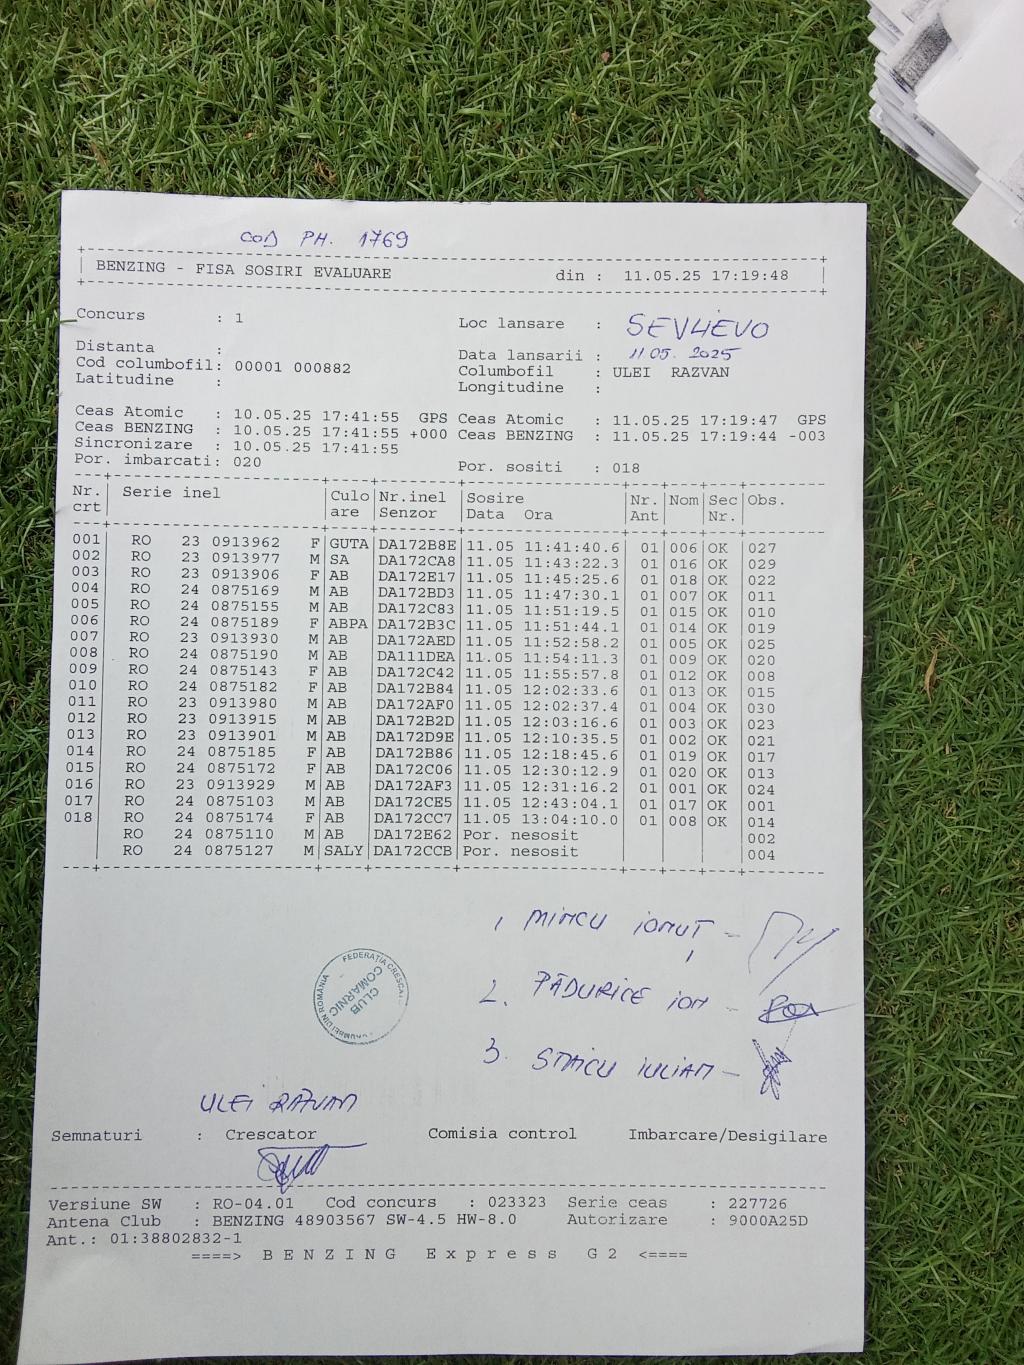 COD PH. 1769
BENZING - FISA SOSIRI EVALUARE din : 11.05.25 17:19:48
Concurs : 1 Loc lansare : SEVLIEVO
Distanta : Data lansarii : 11 05. 2025
Cod columbofil: 00001 000882 Columbofil : ULEI RAZVAN
Latitudine : Longitudine :
Ceas Atomic : 10.05.25 17:41:55 GPS Ceas Atomic : 11.05.25 17:19:47 GPS
Ceas BENZING : 10.05.25 17:41:55 +000 Ceas BENZING : 11.05.25 17:19:44 -003
Sincronizare : 10.05.25 17:41:55
Por. imbarcati: 020 Por. sositi : 018
Nr. Serie inel Culo Nr.inel Sosire Nr. Nom Sec Obs.
crt are Senzor Data Ora Ant Nr.
001 RO 23 0913962 F GUTA DA172B8E 11.05 11:41:40.6 01 006 OK 027
002 RO 23 0913977 M SA DA172CA8 11.05 11:43:22.3 01 016 OK 029
003 RO 23 0913906 F AB DA172E17 11.05 11:45:25.6 01 018 OK 022
004 RO 24 0875169 M AB DA172BD3 11.05 11:47:30.1 01 007 OK 011
005 RO 24 0875155 M AB DA172C83 11.05 11:51:19.5 01 015 OK 010
006 RO 24 0875189 F ABPA DA172B3C 11.05 11:51:44.1 01 014 OK 019
007 RO 23 0913930 M AB DA172AED 11.05 11:52:58.2 01 005 OK 025
008 RO 24 0875190 M AB DA111DEA 11.05 11:54:11.3 01 009 OK 020
009 RO 24 0875143 F AB DA172C42 11.05 11:55:57.8 01 012 OK 008
010 RO 24 0875182 F AB DA172B84 11.05 12:02:33.6 01 013 OK 015
011 RO 23 0913980 M AB DA172AF0 11.05 12:02:37.4 01 004 OK 030
012 RO 23 0913915 M AB DA172B2D 11.05 12:03:16.6 01 003 OK 023
013 RO 23 0913901 M AB DA172D9E 11.05 12:10:35.5 01 002 OK 021
014 RO 24 0875185 F AB DA172B86 11.05 12:18:45.6 01 019 OK 017
015 RO 24 0875172 F AB DA172C06 11.05 12:30:12.9 01 020 OK 013
016 RO 23 0913929 M AB DA172AF3 11.05 12:31:16.2 01 001 OK 024
017 RO 24 0875103 M AB DA172CE5 11.05 12:43:04.1 01 017 OK 001
018 RO 24 0875174 F AB DA172CC7 11.05 13:04:10.0 01 008 OK 014
RO 24 0875110 M AB DA172E62 Por. nesosit 002
RO 24 0875127 M SALY DA172CCB Por. nesosit 004
1, MINCU IONUȚ -
2. PĂDURICE ION -
3. STAICU IULIAN -
CLUB
COMARNIC
ULEI RAZVAN
Semnaturi : Crescator Comisia control Imbarcare/Desigilare
Versiune SW : RO-04.01 Cod concurs : 023323 Serie ceas : 227726
Antena Club : BENZING 48903567 SW-4.5 HW-8.0 Autorizare : 9000A25D
Ant.: 01:38802832-1
====> BENZING Express G2 <====